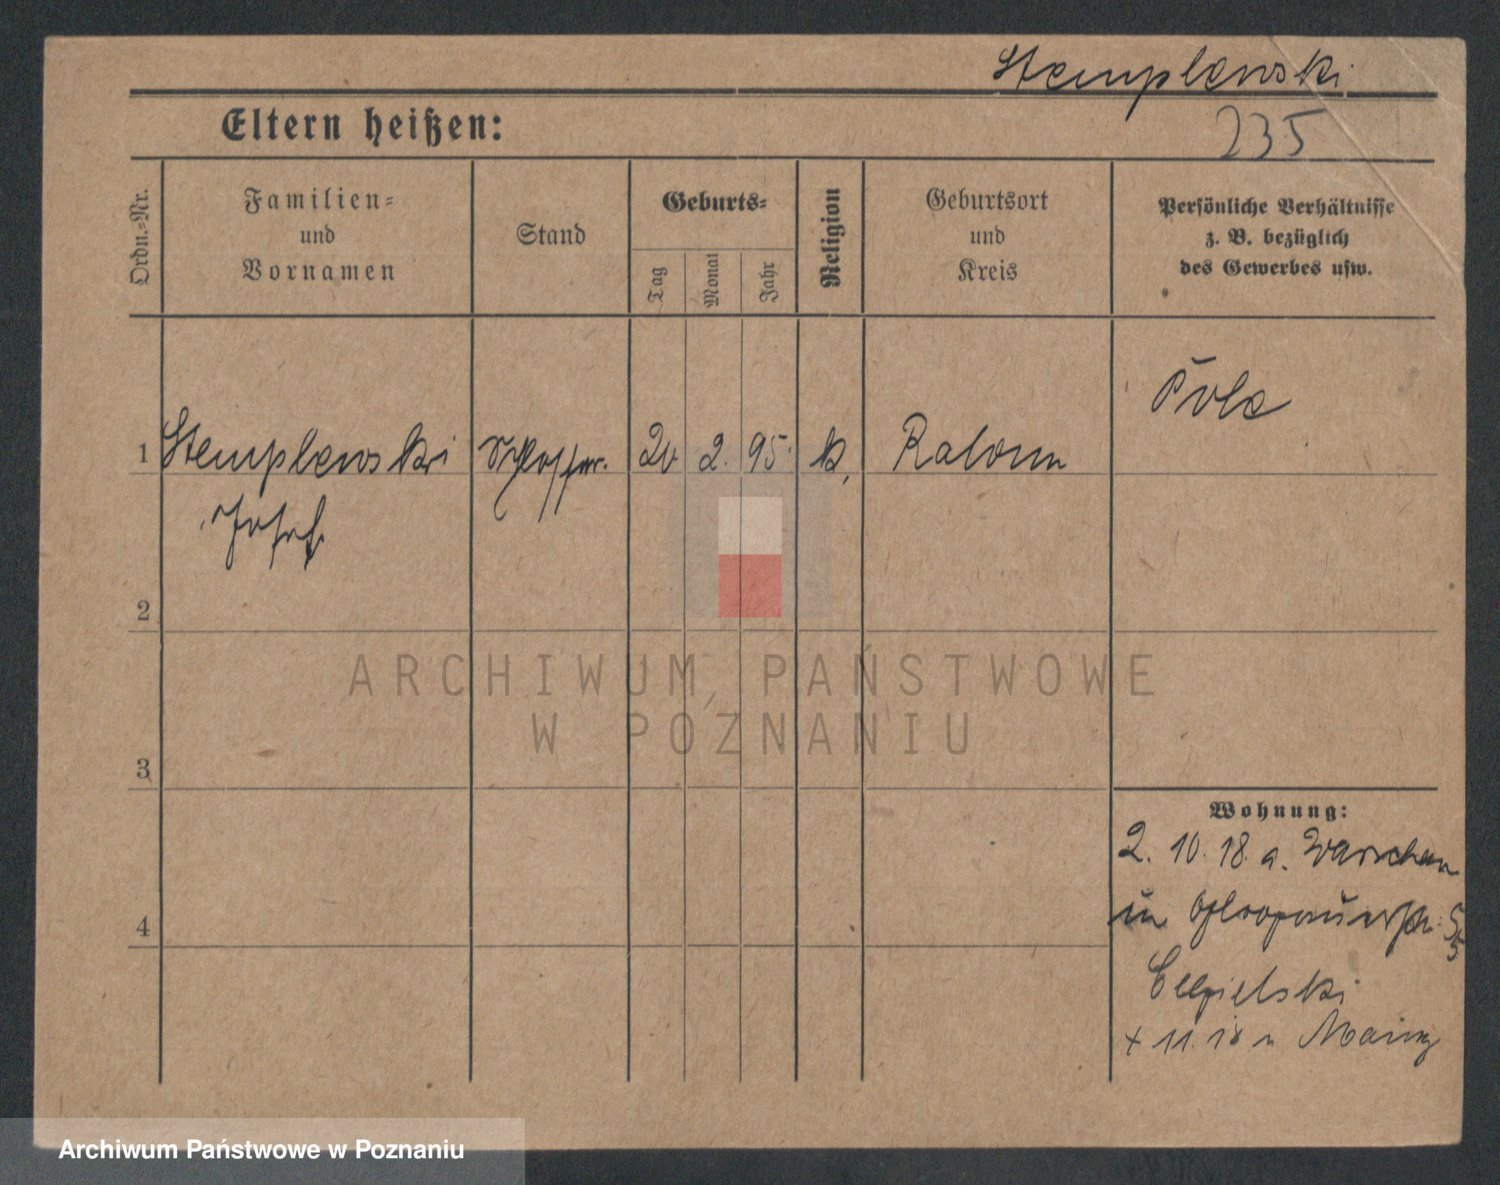 Stemplewski
235
Eltern heißen:
Ordn.-Nr.
Familien-
und
Vornamen
Stand
Geburts-
Tag
Monat
Jahr
Religion
Geburtsort
und
Kreis
Persönliche Verhältnisse
z. B. bezüglich
des Gewerbes usw.
Pole
1 Stemplewski Schlosser. 20 2. 95. k.
Josef.
2
3
4
Wohnung:
2. 10. 18. a. Warschau
in 55
Cegielski
+ 11. 18 n Mainz
ARCHIWUM PAŃSTWOWE
W POZNANIU
Archiwum Państwowe w Poznaniu